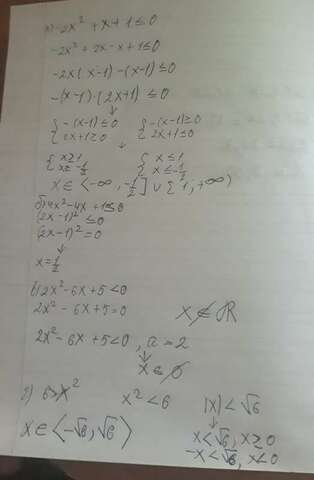 а) -2x² + x + 1 ≤ 0
-2x² + 2x - x + 1 ≤ 0
-2x(x-1) - (x-1) ≤ 0
-(x-1)·(2x+1) ≤ 0
↓
{ -(x-1) ≤ 0 { -(x-1) ≥ 0
2x+1 ≥ 0 2x+1 ≤ 0
↓
{ x ≥ 1 { x ≤ 1
x ≥ -1/2 x ≤ -1/2
x ∈ ⟨-∞, -1/2] ∪ [1, +∞⟩
б) 4x² - 4x + 1 ≤ 0
(2x-1)² ≤ 0
(2x-1)² = 0
↓
x = 1/2
в) 2x² - 6x + 5 < 0
2x² - 6x + 5 = 0 x ∉ ℝ
2x² - 6x + 5 < 0, a = 2
↓
x ∈ ∅
г) 6 > x² x² < 6 |x| < √6
↓
x ∈ ⟨-√6, √6⟩ x < √6, x ≥ 0
-x < √6, x < 0